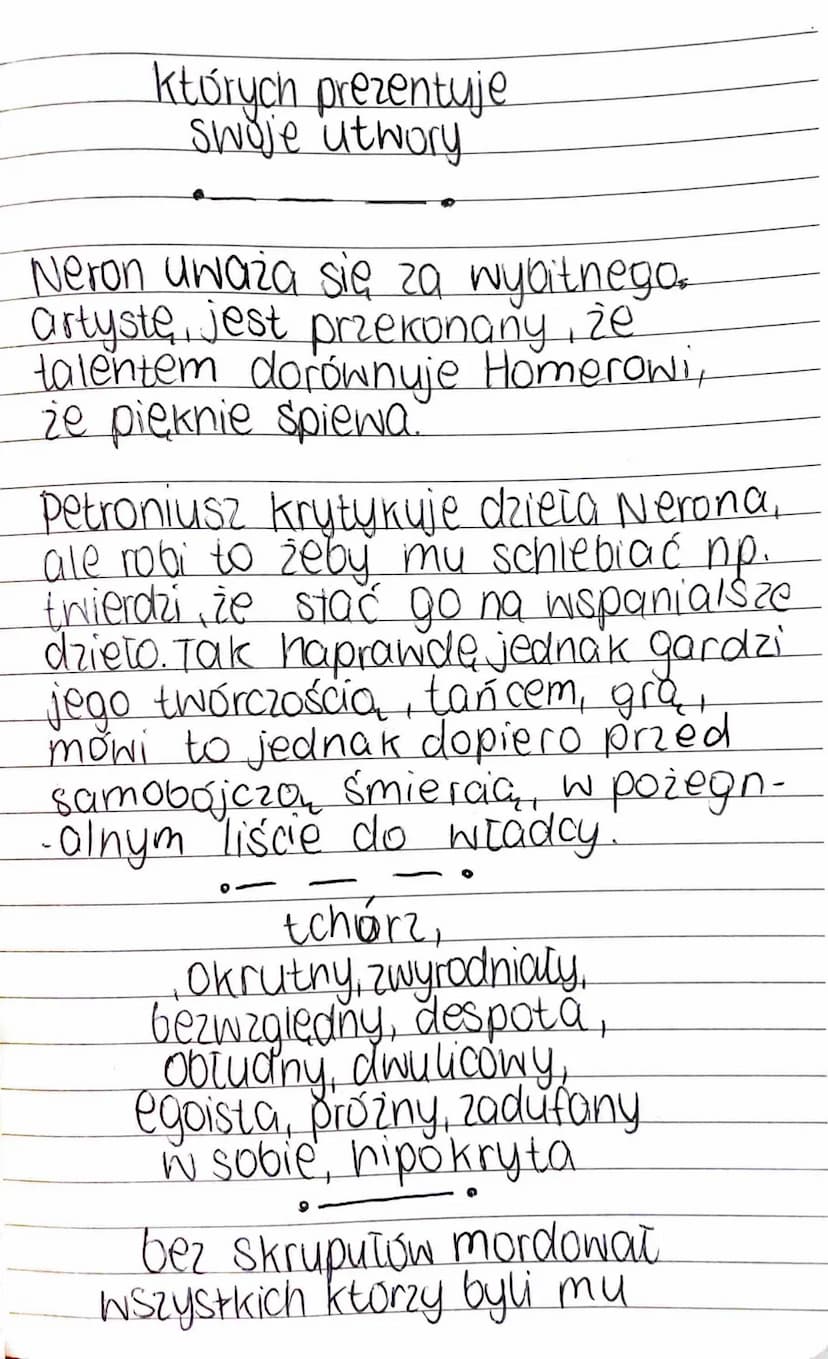 których prezentuje
swoje utwory
Neron uważa się za wybitnego
artystę, jest przekonany, że
talentem dorównuje Homerowi,
że pięknie śpiewa.
Petroniusz krytykuje dzieła Nerona,
ale robi to żeby mu schlebiać np.
twierdzi, że stać go na wspanialsze
dzieło. Tak naprawdę jednak gardzi
jego twórczością, tańcem, grą,
mówi to jednak dopiero przed
samobójczą śmiercią, w pożegn-
-alnym liście do władcy.
tchórz,
okrutny, zwyrodniały,
bezwzględny, despota,
obłudny, dwulicowy,
egoista, próżny, zadufany
w sobie, hipokryta
bez skrupułów mordował
wszystkich którzy byli mu